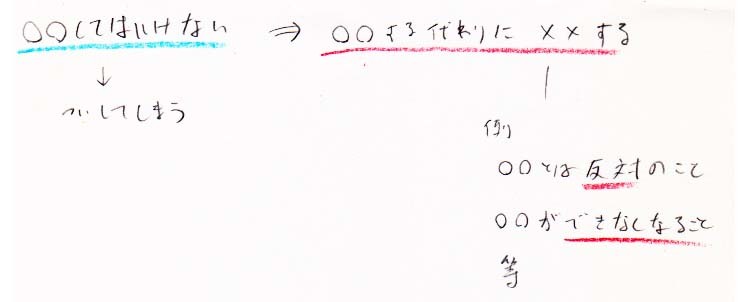 〇〇してはいけない ⇒ 〇〇する代わりに ××する
↓
ついしてしまう
例
〇〇とは反対のこと
〇〇ができなくなること
等